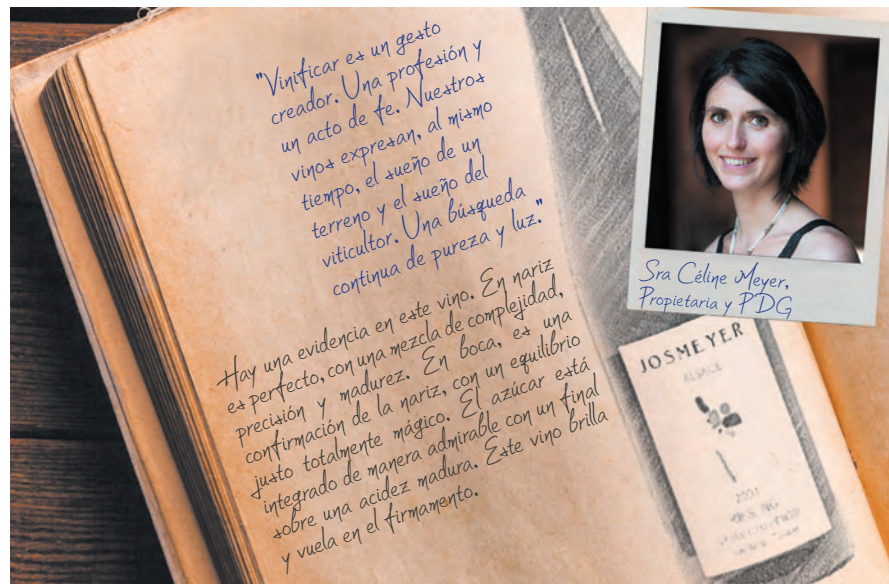 "Vinificar es un gesto
creador. Una profesión y
un acto de fe. Nuestros
vinos expresan, al mismo
tiempo, el sueño de un
terreno y el sueño del
viticultor. Una búsqueda
continua de pureza y luz."
Hay una evidencia en este vino. En nariz
es perfecto, con una mezcla de complejidad,
precisión y madurez. En boca, es una
confirmación de la nariz, con un equilibrio
justo totalmente mágico. El azúcar está
integrado de manera admirable con un final
sobre una acidez madura. Este vino brilla
y vuela en el firmamento.
Sra Céline Meyer,
Propietaria y PDG
JOSMEYER
ALSACE
RIESLING